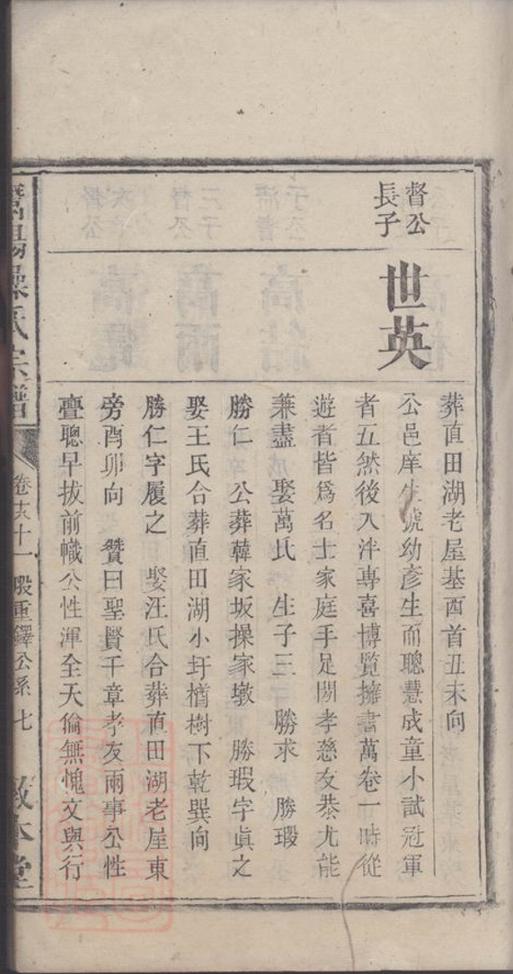 督公
長子
世英
葬直田湖老屋基酉首丑未向
公邑庠生號幼彥生而聰慧成童小試冠軍
者五然後入泮專喜博覽擁書萬卷一時從
遊者皆爲名士家庭手足閒孝慈友恭尤能
兼盡　娶萬氏　生子三　勝求　勝瑕
勝仁　公葬韓家坂操家墩　勝瑕字眞之
娶王氏合葬直田湖小圩樹下乾巽向
勝仁字履之　娶汪氏合葬直田湖老屋東
旁酉卯向　贊曰聖賢千章孝友兩事公性
亶聰早拔前幟公性渾全天倫無愧文與行
操氏宗譜
卷十一
殿重鐸公系　七
敦本堂